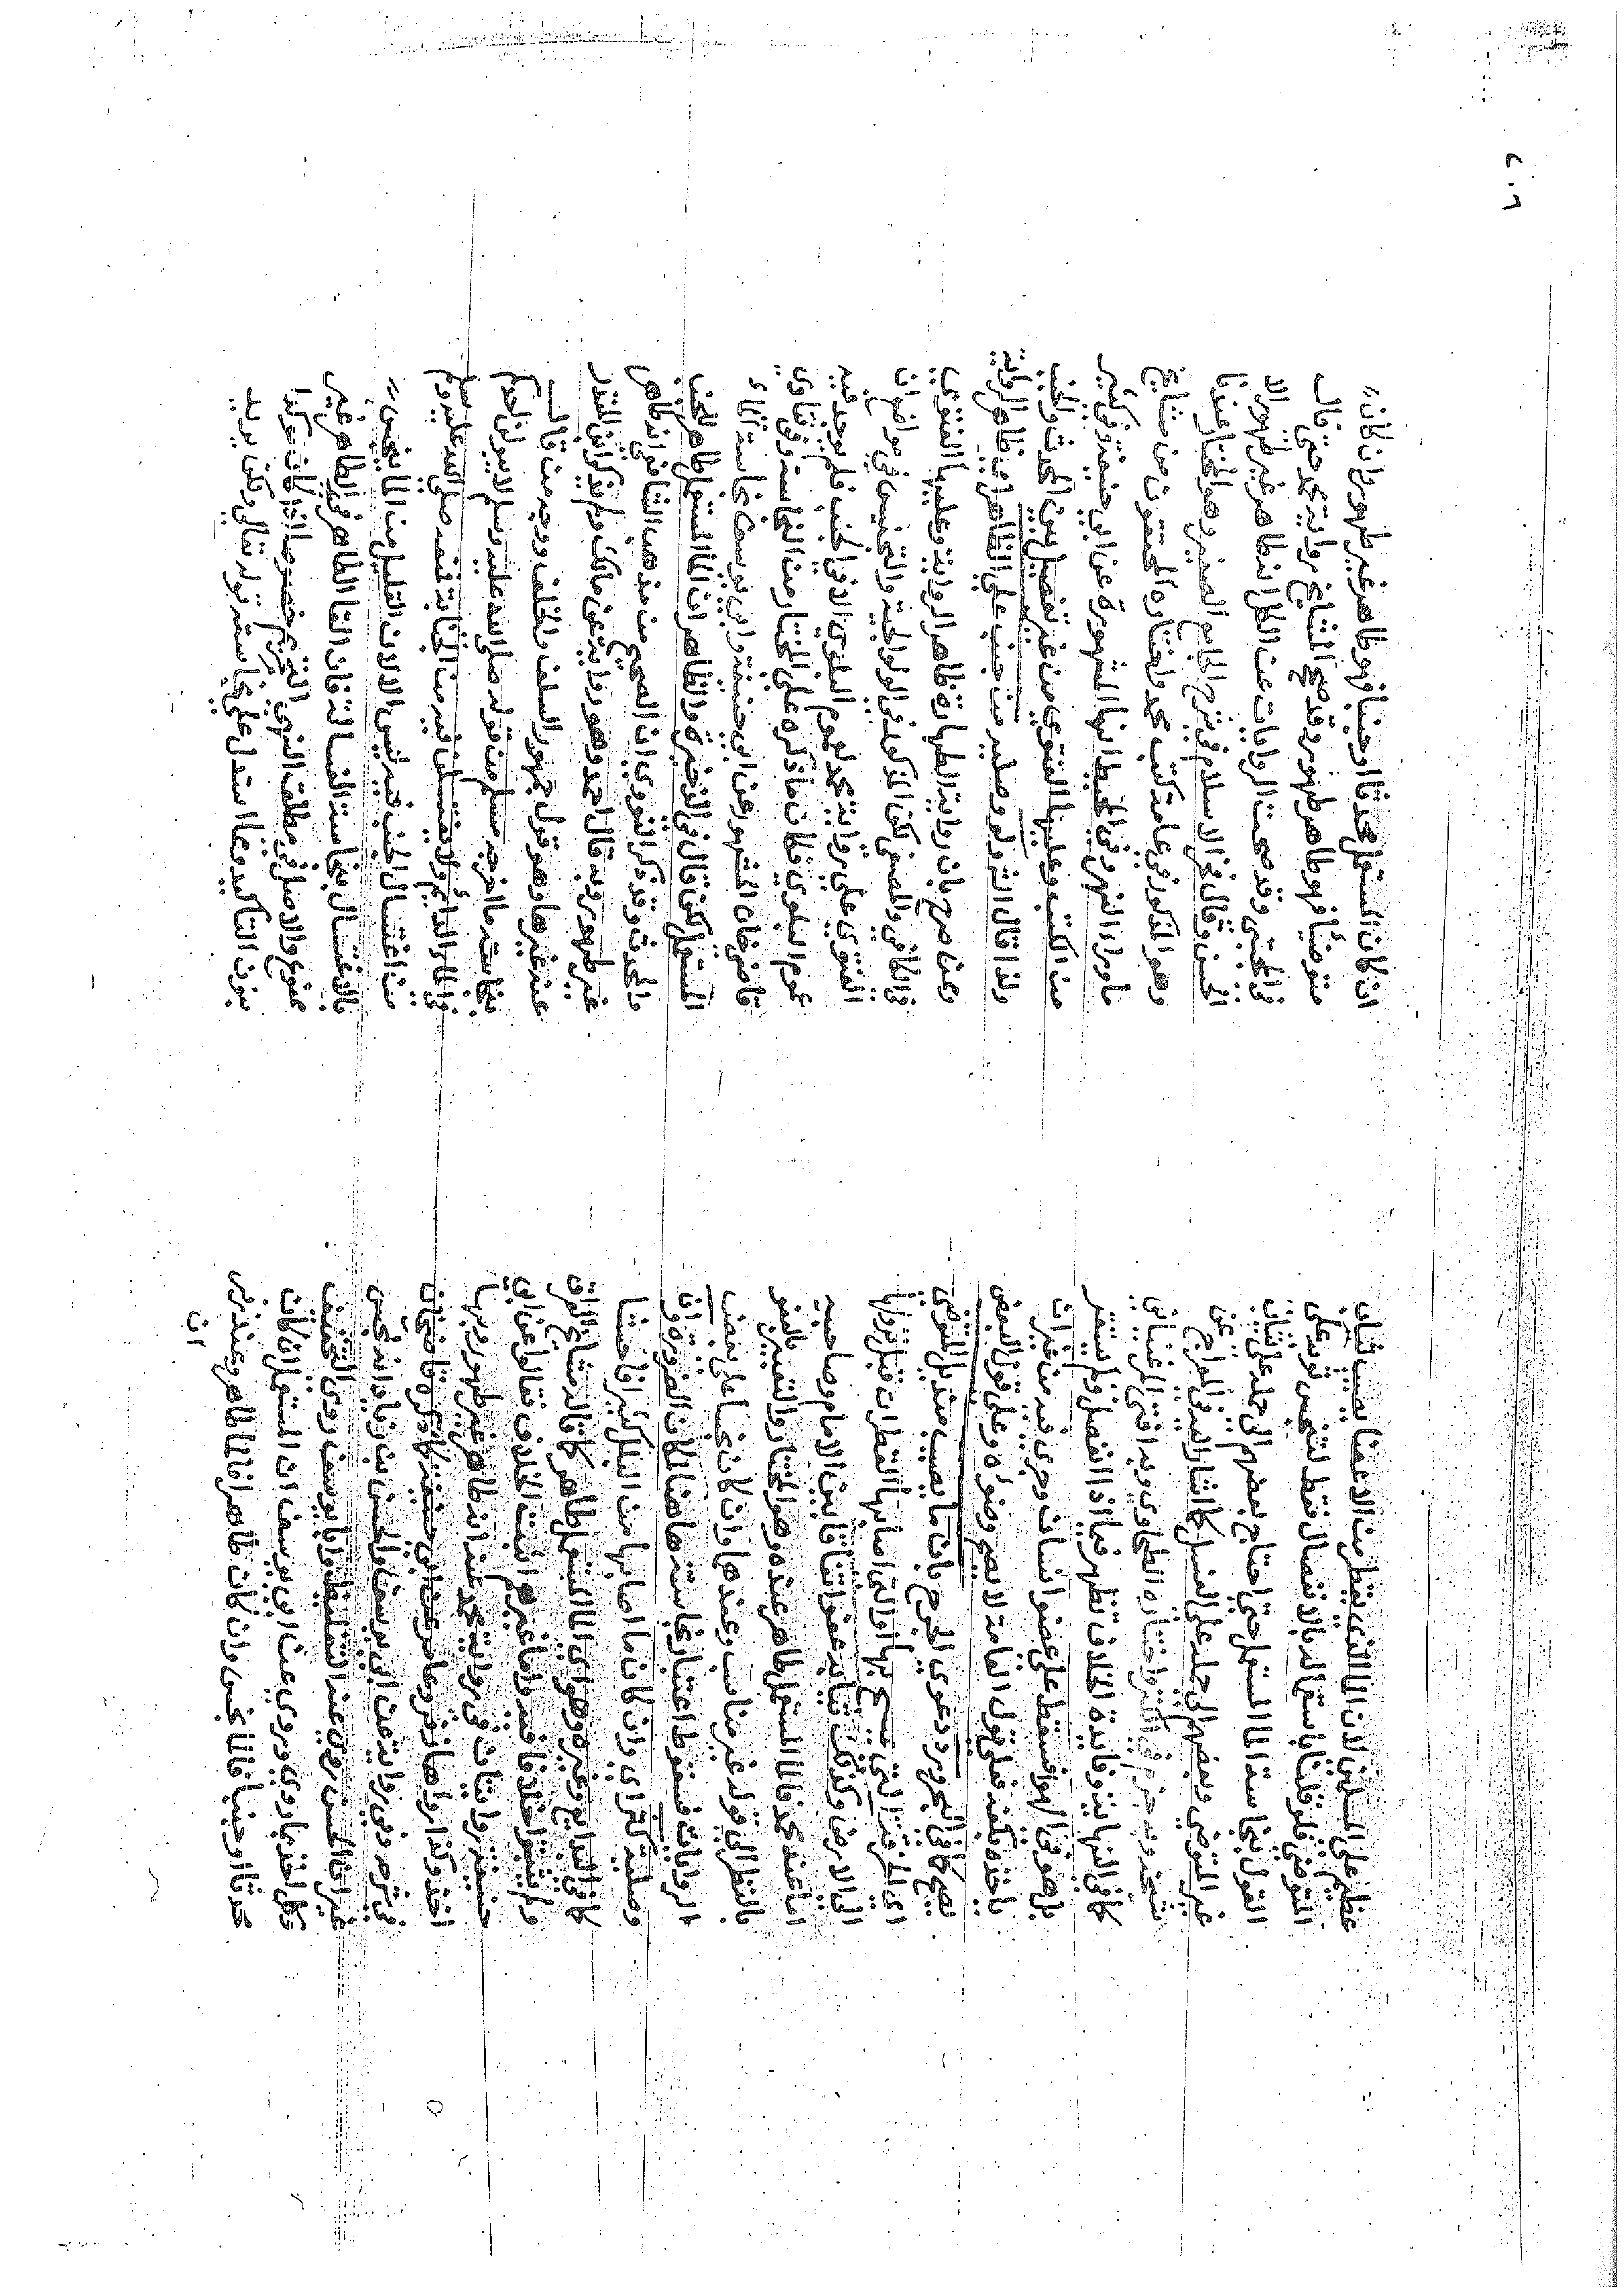 عظيم على المسلمين لان الماء الذي يتقطر من الاعضا يصيب ثياب
المتوضي فلو قلنا باستعماله بالانفصال فقط لتنجس ثوبه على
القول بنجاسة الماء المستعمل حتى احتاج بعضهم الى حمله على ثياب
غير المتوضي وبعضهم الى حمله على الغسل كما اشار اليه في المعراج عن
شيخه وبه جزم في الكنز واختاره الطحاوي وبه افتى المرغيناني
كما في النهاية وفايدة الخلاف تظهر فيما اذا انفصل ولم يستقر
بل هو في الهوا فسقط على عضو انسان وجرى فيه من غير ان
ياخذه بكفه فعلى قول العامة لا يصح وضوءه وعلى قول البعض
يصح كما في البحر ورد دعوى الحرج بان ما يصيب منديل المتوضي
اي الخرقة التي يمسح بها او التي اصابها القطرات قبل نزولها
الى الارض وكذلك ثيابه عفو اتفاقا بين الامام وصاحبيه
اما عند محمد فالماء المستعمل طاهر عنده وهو المختار والتعبير بالعفو
بالنظر الى قوله غير مناسب وعندهما وان كان نجسا على بعض
الروايات فسقوط اعتبار نجاسته هاهنا لمكان الضرورة وان
وصلية كثر اي وان كان ما اصابها من البلل كثيرا فاحشا
كما في البدايع وغيره وهو اي الماء المستعمل طاهر كما قاله مشايخ العراق
ولم يثبتوا خلافا فيه واما غيرهم اثبت الخلاف فقالوا عن ابي
حنيفة روايتان في رواية محمد عنه انه طاهر غير طهور وبها
اخذ وكذا رواها زفر وعامر عن ابي حنيفة كما ذكره قاضيخان
في شرحه وفي رواية عن ابي يوسف والحسن بن زياد انه نجس
غير ان الحسن روى عنه التغليظ وابا يوسف روى التخفيف
وكل اخذ بما روى وروي عن ابي يوسف ان المستعمل ان كان
محدثا او جنبا فالماء نجس وان كان طاهرا فالماء طاهر وعند زفر
ان
٢٠٦
ان كان المستعمل محدثا او جنبا فهو طاهر غير طهور وان كان
متوضئا فهو طاهر طهور وقد صحح المشايخ رواية محمد حتى قال
في المجتبى وقد صحت الروايات عن الكل انه طاهر غير طهور الا
الحسن وقال فخر الاسلام في شرح الجامع الصغير وهو المختار عندنا
وهو المذكور في عامة كتب محمد واختاره المحققون من مشايخ
ماوراء النهر وفي المحيط انها المشهورة عن ابي حنيفة وفي كثير
من الكتب وعليها الفتوى من غير تفصيل بين المحدث والجنب
ولذا قال الشم ولو وصلية من جنب على الظاهر اي ظاهر الرواية
وممن صرح بان رواية الطهارة ظاهر الرواية وعليها الفتوى
في الكافي والمصفى لكن المذكور في الولوالجية والتجنيس في مواضع ان
الفتوى على رواية محمد لعموم البلوى الا في الجنب فلم يوجد فيه
عموم البلوى فكان ما ذكره على المختار من النجاسة وفي فتاوى
قاضيخان المشهور عن ابي حنيفة وابي يوسف نجاسة الماء
المستعمل لكن قال في الذخيرة والظاهر ان الماء المستعمل طاهر للجنب
والمحدث وقد ذكر النووي ان الصحيح من مذهب الشافعي انه طاهر
غير طهور وبه قال احمد وهو رواية عن مالك ولم يذكر ابن المنذر
عنه غيرها وهو قول جمهور السلف والخلف ووجه من قال
بنجاسته ما اخرجه مسلم من قوله صلى الله عليه وسلم لا يبولن احدكم
في الماء الدائم ولا يغتسلن فيه من الجنابة فنهيه صلى الله عليه وسلم
من اغتسال الجنب فيه يقتضي الا ان القليل من الماء ينجس
بالاغتسال بنجاسة الغسالة فان القاء الطاهر في الطاهر غير
ممنوع والاصل في مطلق النهي التحريم خصوصا اذا كان موكدا
بنون التاكيد ومما استدل على نجاسته قوله تعالى ولكن يريد